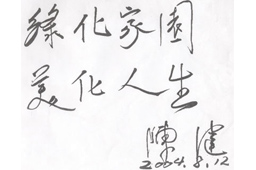 綠化家園
美化人生
陳健
2004.8.12